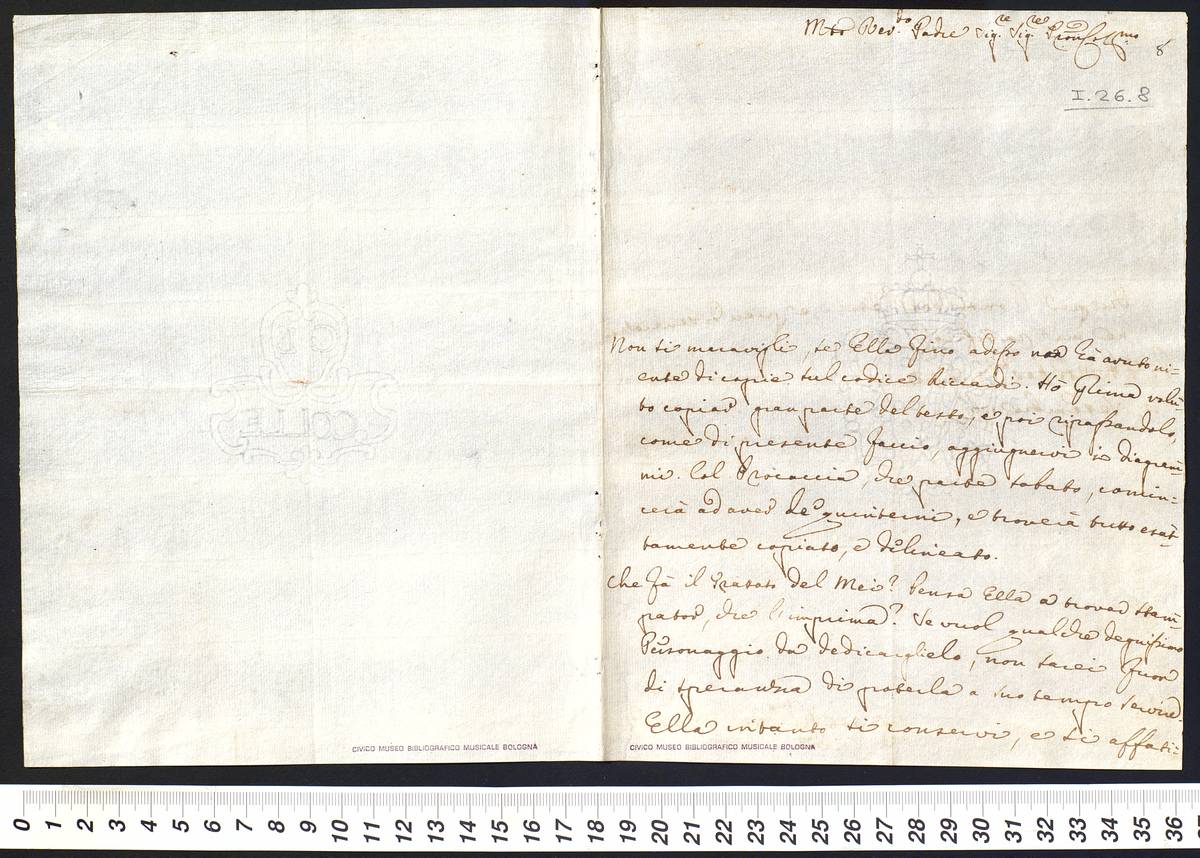 Mto Revdo Padre Sigre Sigre Pron Collmo
8
I.26.8
Non si maravigli, se Ella fino adesso non hà avuto ni=
ente di copie sul codice Riccardi. Hò prima volu=
to copiar gran parte del testo, e poi ripassandolo,
come di presente faccio, aggiugnervi i diagram=
mi. Col Procaccia, che parte sabato, comin=
cerà ad aver de' quinterni, e troverà tutto esat=
tamente copiato, e delineato.
Che fà il Trattato del Mei? Pensa Ella a trovar stam=
pator, che l'imprima? Se vuol qualche degnissimo
Personaggio da dedicarglielo, non sarei fuor
di speranza di poterla a suo tempo servire.
Ella intanto si conservi, e si affati=
COLLE
CIVICO MUSEO BIBLIOGRAFICO MUSICALE BOLOGNA
CIVICO MUSEO BIBLIOGRAFICO MUSICALE BOLOGNA
0 1 2 3 4 5 6 7 8 9 10 11 12 13 14 15 16 17 18 19 20 21 22 23 24 25 26 27 28 29 30 31 32 33 34 35 36